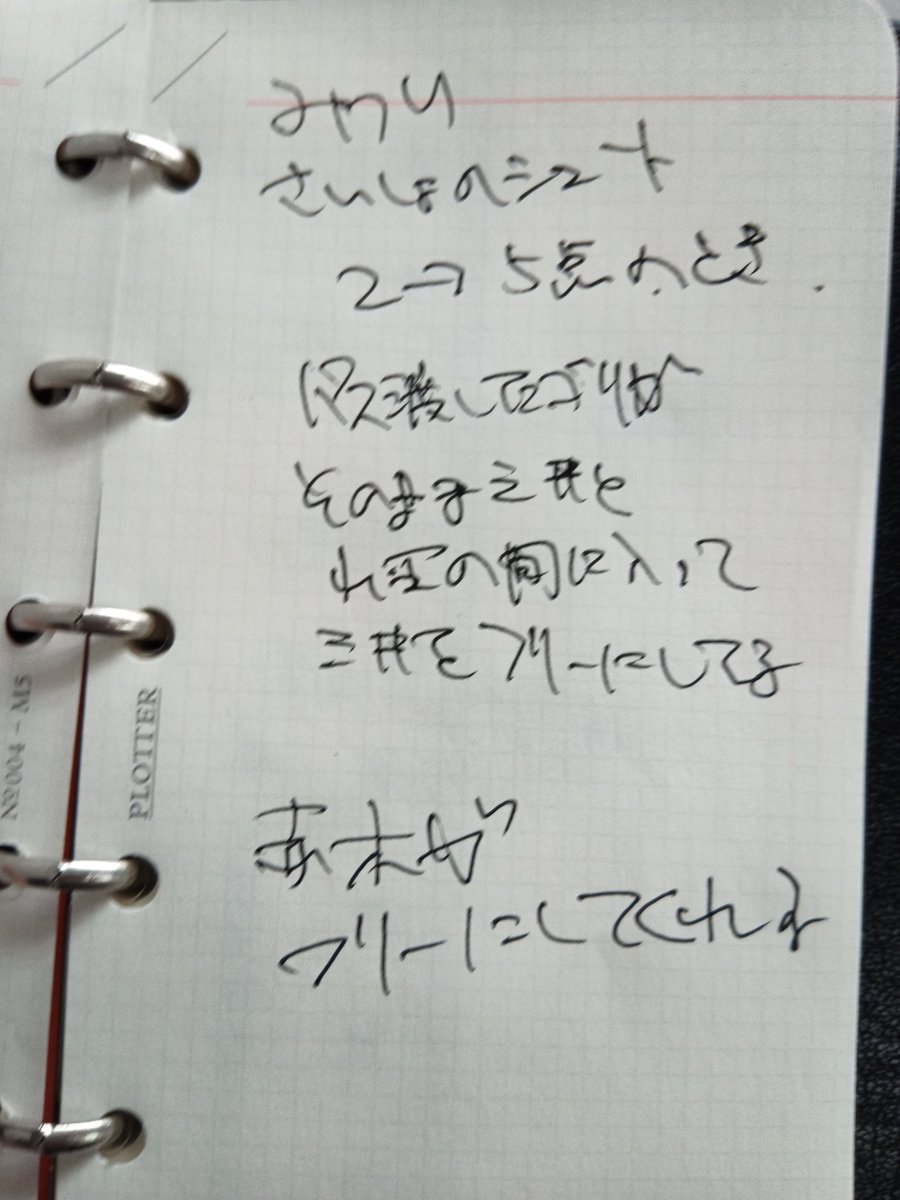 みやうり
さいしょのシュート
2→5点のとき.
パス渡してゴリが
そのまま三井と
の間に入って
三井をフリーにしてる
赤木が
フリーにしてくれる
PLOTTER
Nº004-M5